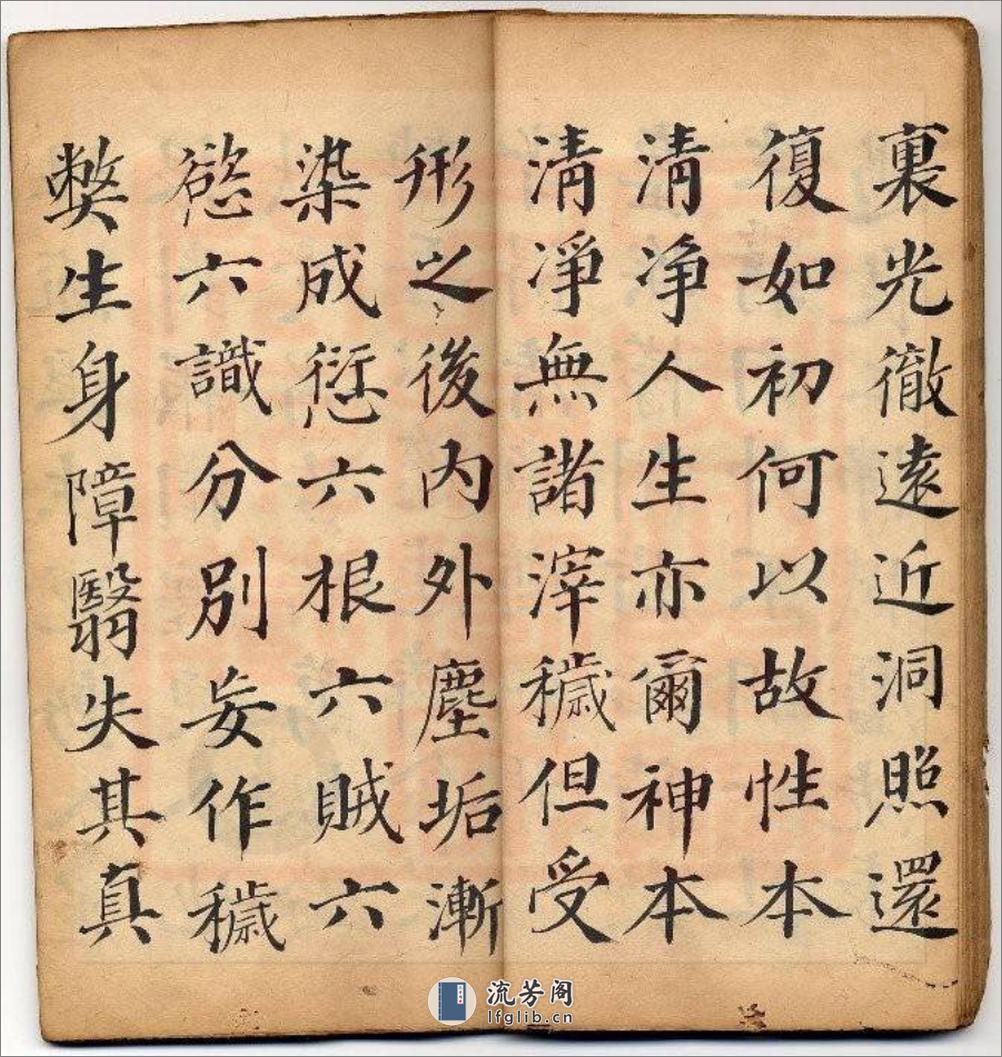 裏光徹遠近洞照還
復如初何以故性本
清净人生亦爾神本
清凈無諸滓穢但受
形之後内外塵垢漸
染成愆六根六賊六
慾六識分别妄作穢
獘生身障翳失其真
流芳阁
lfglib.cn